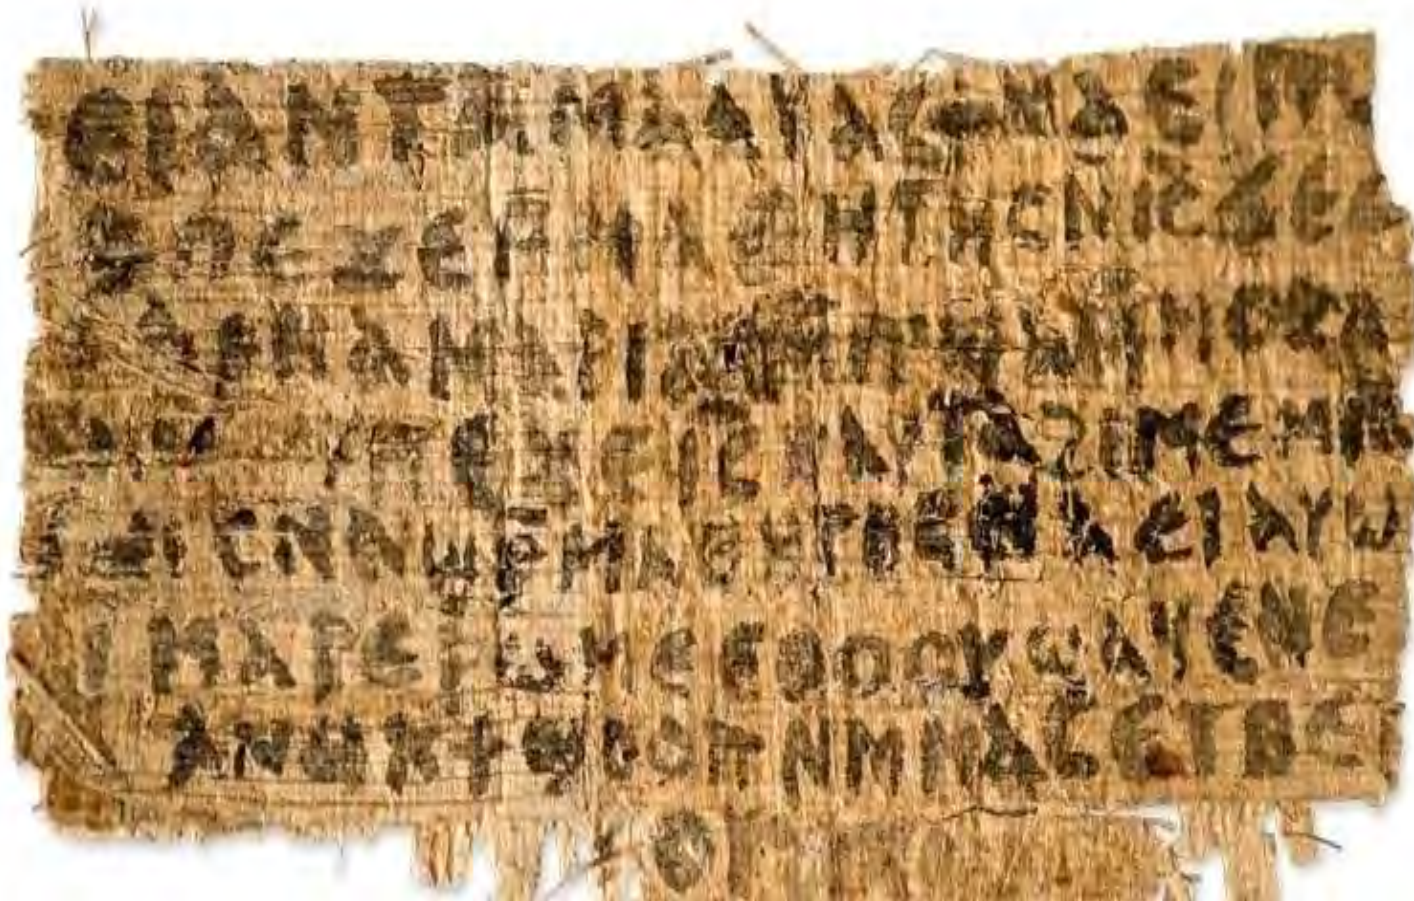 ⲉⲓⲁⲛⲧⲁⲙⲁⲁⲩⲁⲥϯⲛⲁⲉⲓⲡ
ⲡⲉϫⲉⲙ̄ⲙⲁⲑⲏⲧⲏⲥⲛ̄ⲓ̅ⲥ̅ϫⲉ
ⲁⲣⲛⲁⲙⲁⲣⲓⲁⲙⲙ̄ⲡϣⲁⲙ̄ⲙⲟⲥⲁ
ⲡⲉϫⲉⲓ̅ⲥ̅ⲛⲁⲩⲧⲁϩⲓⲙⲉⲙⲛ̄
ⲥⲛⲁϣⲣ̄ⲙⲁⲑⲏⲧⲏⲥⲛⲁⲉⲓⲁⲩⲱ
ⲓⲙⲁⲣⲉⲣⲱⲙⲉⲉⲑⲟⲟⲩϣⲁϥⲉⲛⲉ
ⲁⲛⲟⲕϯϣⲟⲟⲡⲛⲙⲙⲁⲥⲉⲧⲃⲉⲡ